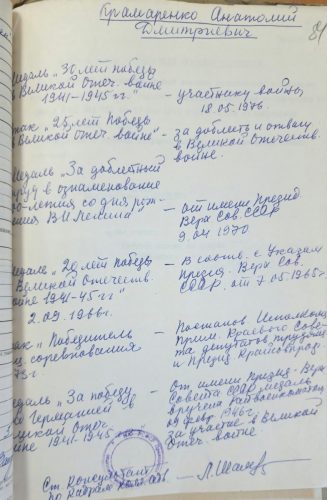 Крамаренко Анатолий
Дмитриевич
81
медаль "30 лет победы
в Великой Отеч. войне
1941-1945 гг." - участнику войны,
18.05.1976.
знак "25 лет Победы
в Великой Отеч. войне" - за доблесть и отвагу
в Великой Отечеств.
войне.
медаль "За доблестный
труд в ознаменование
100-летия со дня рож-
дения В.И. Ленина" - от имени Презид.
Верх. Сов. СССР
9.04.1970
медаль "20 лет победы
в Великой Отечеств.
войне 1941-45 гг." - В соотв. с Указом
Презид. Верх. Сов.
СССР от 7.05.1965 г.
2.09.1966 г.
знак "Победитель
соц. соревнования
73 г." - Постановл. Исполкома
Прим. Краевого Сове-
та депутатов трудящ.
и Президиума
медаль "За победу
над Германией в
Великой Отеч.
войне 1941-1945 - От имени Презид. Верх
Совета СССР медаль
вручена Райвоенкоматом
февр. 1946 г.
за участие в Великой
Отеч. войне
Ст. Консультант
по кадрам